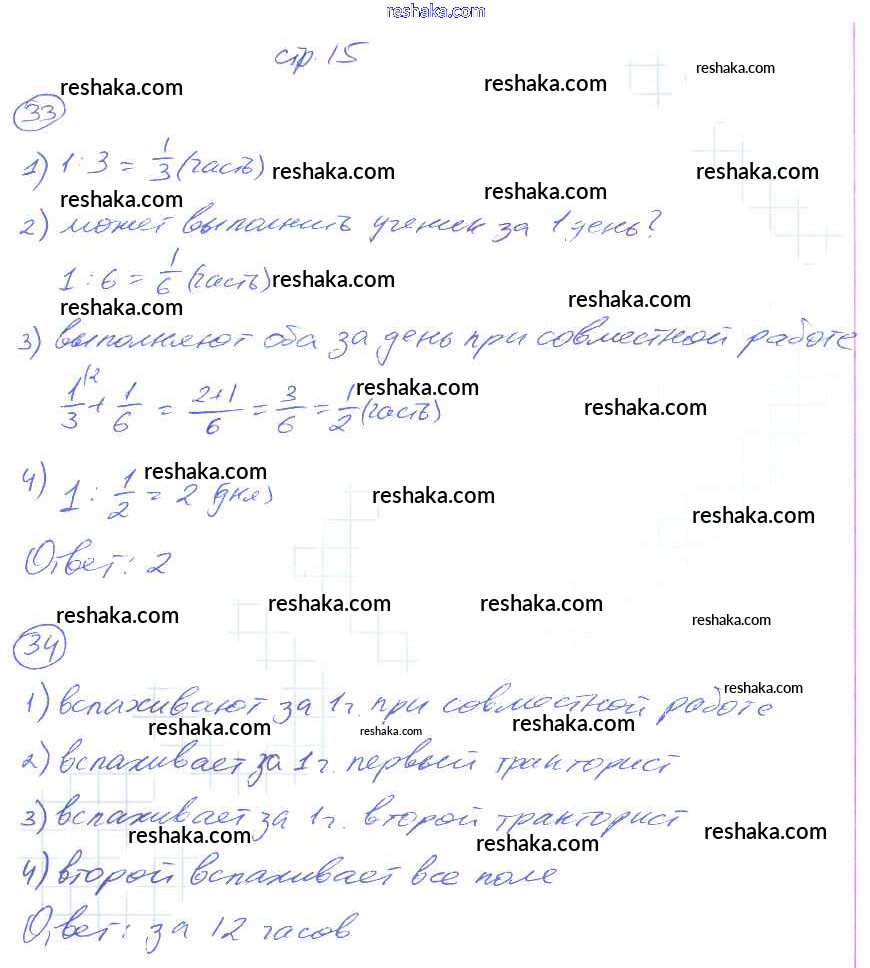 reshaka.com
стр. 15
reshaka.com reshaka.com reshaka.com
33
1) 1 : 3 = 1/3 (часть) reshaka.com reshaka.com
reshaka.com reshaka.com
2) может выполнить ученик за 1 день?
1 : 6 = 1/6 (часть) reshaka.com
reshaka.com reshaka.com
3) выполняют оба за день при совместной работе
reshaka.com
1/3 |2 + 1/6 = 2+1/6 = 3/6 = 1/2 (часть) reshaka.com
reshaka.com
4) 1 : 1/2 = 2 (дня) reshaka.com
reshaka.com
Ответ: 2
reshaka.com reshaka.com reshaka.com reshaka.com
34
1) вспахивают за 1 г. при совместной работе reshaka.com
reshaka.com reshaka.com reshaka.com
2) вспахивает за 1 г. первый тракторист
3) вспахивает за 1 г. второй тракторист
reshaka.com reshaka.com reshaka.com
4) второй вспахивает все поле
Ответ: за 12 часов